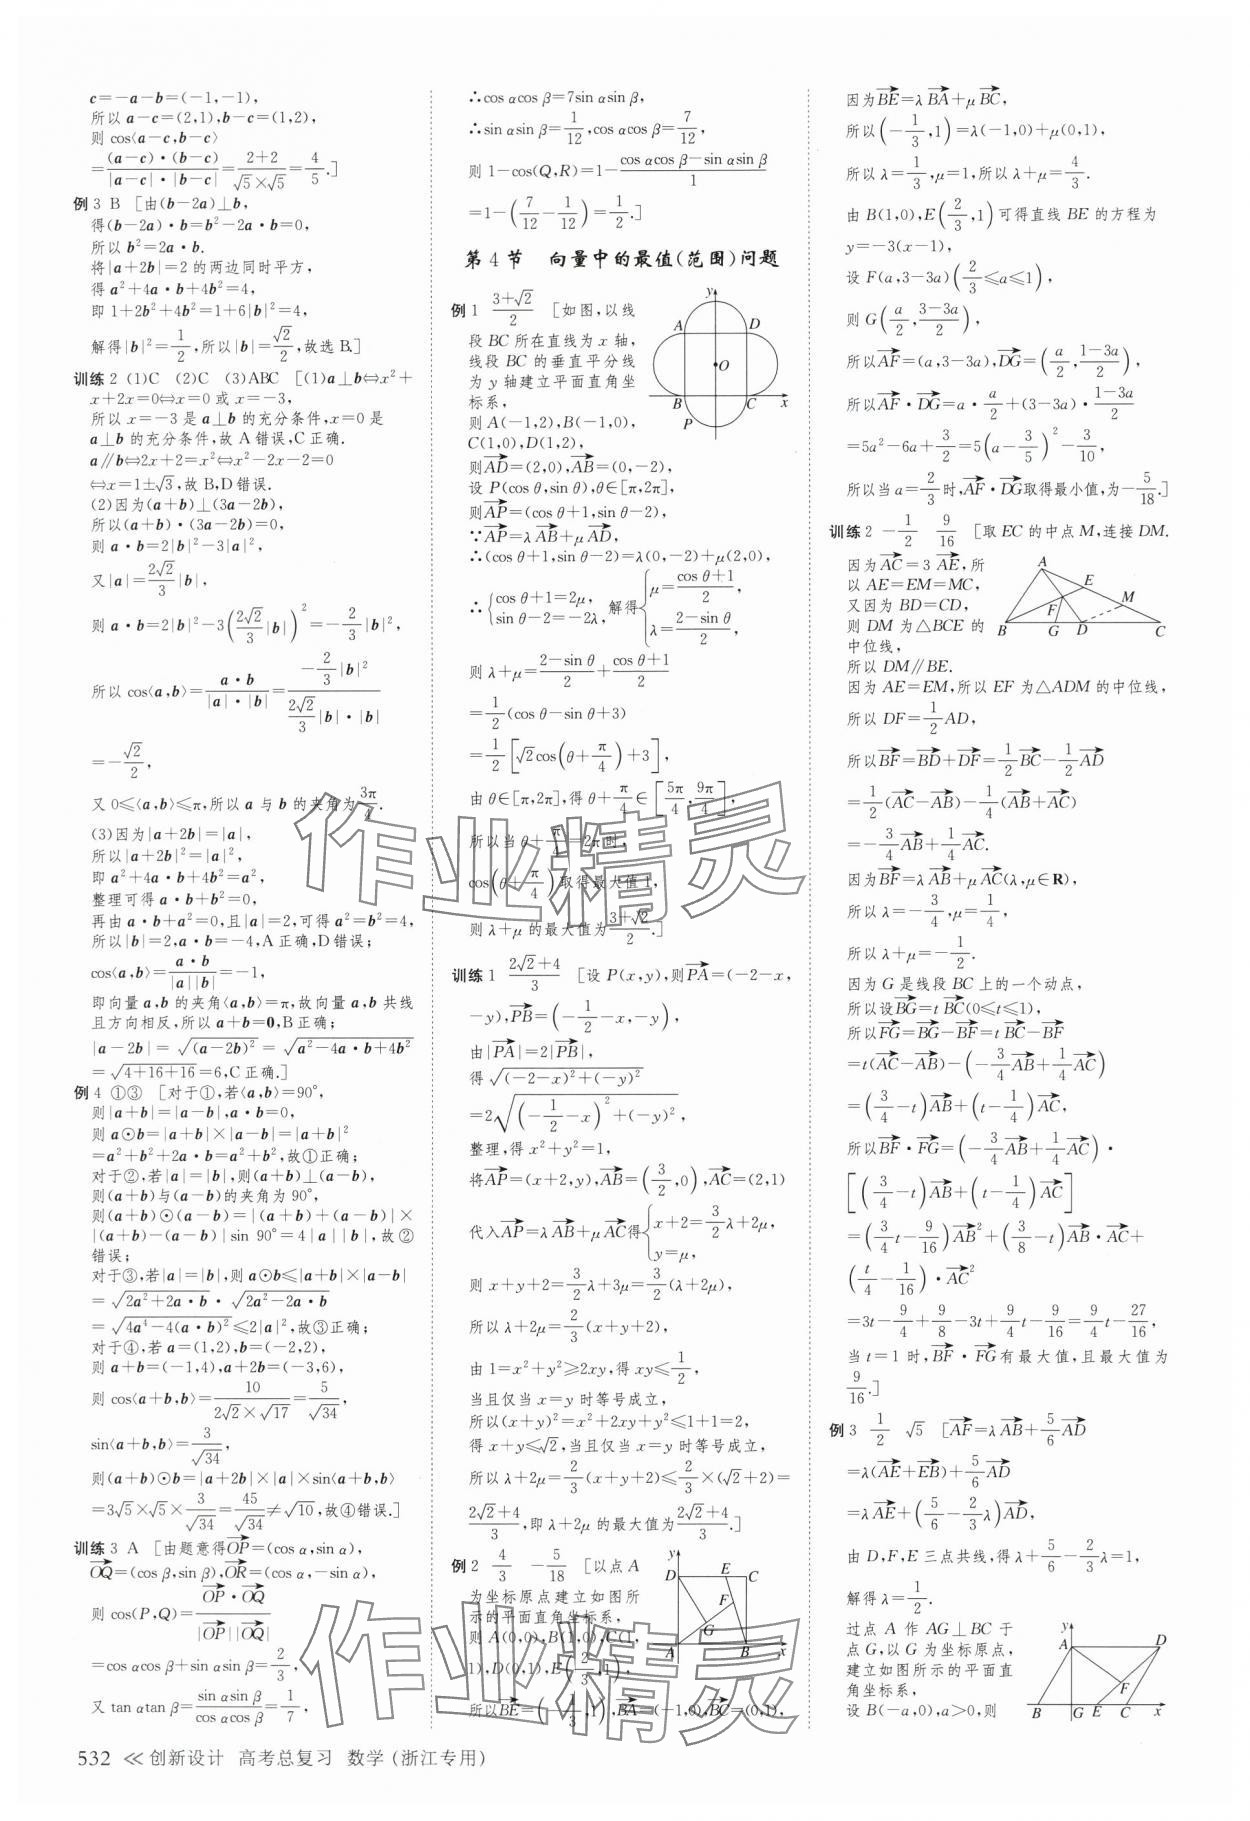 c=-a-b=(-1,-1),
所以 a-c=(2,1),b-c=(1,2),
则 cos⟨a-c,b-c⟩
=\frac{(a-c)·(b-c)}{|a-c|·|b-c|}=\frac{2+2}{√5×√5}=\frac{4}{5}.]
例 3 B [由(b-2a)⊥b,
得(b-2a)·b=b²-2a·b=0,
所以 b²=2a·b.
将|a+2b|=2 的两边同时平方,
得 a²+4a·b+4b²=4,
即 1+2b²+4b²=1+6|b|²=4,
解得|b|²=\frac{1}{2},所以|b|=\frac{√2}{2},故选 B.]
训练 2 (1)C (2)C (3)ABC [(1)a⊥b⇔x²+
x+2x=0⇔x=0 或 x=-3,
所以 x=-3 是 a⊥b 的充分条件,x=0 是
a⊥b 的充分条件,故 A 错误,C 正确.
a∥b⇔2x+2=x²⇔x²-2x-2=0
⇔x=1±√3,故 B,D 错误.
(2)因为(a+b)⊥(3a-2b),
所以(a+b)·(3a-2b)=0,
则 a·b=2|b|²-3|a|²,
又|a|=\frac{2√2}{3}|b|,
则 a·b=2|b|²-3(\frac{2√2}{3}|b|)²=-\frac{2}{3}|b|²,
所以 cos⟨a,b⟩=\frac{a·b}{|a|·|b|}=\frac{-\frac{2}{3}|b|²}{\frac{2√2}{3}|b|·|b|}
=-\frac{√2}{2},
又 0≤⟨a,b⟩≤π,所以 a 与 b 的夹角为\frac{3π}{4}.
(3)因为|a+2b|=|a|,
所以|a+2b|²=|a|²,
即 a²+4a·b+4b²=a²,
整理可得 a·b+b²=0,
再由 a·b+a²=0,且|a|=2,可得 a²=b²=4,
所以|b|=2,a·b=-4,A 正确,D 错误;
cos⟨a,b⟩=\frac{a·b}{|a||b|}=-1,
即向量 a,b 的夹角⟨a,b⟩=π,故向量 a,b 共线
且方向相反,所以 a+b=0,B 正确;
|a-2b|=\sqrt{(a-2b)²}=\sqrt{a²-4a·b+4b²}
=\sqrt{4+16+16}=6,C 正确.]
例 4 ①③ [对于①,若⟨a,b⟩=90°,
则|a+b|=|a-b|,a·b=0,
则 a⊙b=|a+b|×|a-b|=|a+b|²
=a²+b²+2a·b=a²+b²,故①正确;
对于②,若|a|=|b|,则(a+b)⊥(a-b),
则(a+b)与(a-b)的夹角为 90°,
则(a+b)⊙(a-b)=|(a+b)+(a-b)|×
|(a+b)-(a-b)|sin 90°=4|a||b|,故②
错误;
对于③,若|a|=|b|,则 a⊙b≤|a+b|×|a-b|
=\sqrt{2a²+2a·b}·\sqrt{2a²-2a·b}
=\sqrt{4a⁴-4(a·b)²}≤2|a|²,故③正确;
对于④,若 a=(1,2),b=(-2,2),
则 a+b=(-1,4),a+2b=(-3,6),
则 cos⟨a+b,b⟩=\frac{10}{2√2×√17}=\frac{5}{√34},
sin⟨a+b,b⟩=\frac{3}{√34},
则(a+b)⊙b=|a+2b|×|a|×sin⟨a+b,b⟩
=3√5×√5×\frac{3}{√34}=\frac{45}{√34}≠√10,故④错误.]
训练 3 A [由题意得\vec{OP}=(cos α,sin α),
\vec{OQ}=(cos β,sin β),\vec{OR}=(cos α,-sin α),
则 cos(P,Q)=\frac{\vec{OP}·\vec{OQ}}{|\vec{OP}||\vec{OQ}|}
=cos αcos β+sin αsin β=\frac{2}{3},
又 tan αtan β=\frac{sin αsin β}{cos αcos β}=\frac{1}{7},
∴cos αcos β=7sin αsin β,
∴sin αsin β=\frac{1}{12},cos αcos β=\frac{7}{12},
则 1-cos(Q,R)=1-\frac{cos αcos β-sin αsin β}{1}
=1-(\frac{7}{12}-\frac{1}{12})=\frac{1}{2}.]
第 4 节 向量中的最值(范围)问题
例 1 \frac{3+√2}{2} [如图,以线
段 BC 所在直线为 x 轴,
线段 BC 的垂直平分线
为 y 轴建立平面直角坐
标系,
y
A D
O
B C x
P
则 A(-1,2),B(-1,0),
C(1,0),D(1,2),
则\vec{AD}=(2,0),\vec{AB}=(0,-2),
设 P(cos θ,sin θ),θ∈[π,2π],
则\vec{AP}=(cos θ+1,sin θ-2),
∵\vec{AP}=λ\vec{AB}+μ\vec{AD},
∴(cos θ+1,sin θ-2)=λ(0,-2)+μ(2,0),
∴{cos θ+1=2μ, sin θ-2=-2λ, 解得{μ=\frac{cos θ+1}{2}, λ=\frac{2-sin θ}{2},
则 λ+μ=\frac{2-sin θ}{2}+\frac{cos θ+1}{2}
=\frac{1}{2}(cos θ-sin θ+3)
=\frac{1}{2}[√2cos(θ+\frac{π}{4})+3],
由 θ∈[π,2π],得 θ+\frac{π}{4}∈[\frac{5π}{4},\frac{9π}{4}],
所以当 θ+\frac{π}{4}=2π 时,
cos(θ+\frac{π}{4})取得最大值 1,
则 λ+μ 的最大值为\frac{3+√2}{2}.]
训练 1 \frac{2√2+4}{3} [设 P(x,y),则\vec{PA}=(-2-x,
-y),\vec{PB}=(-\frac{1}{2}-x,-y),
由|\vec{PA}|=2|\vec{PB}|,
得\sqrt{(-2-x)²+(-y)²}
=2\sqrt{(-\frac{1}{2}-x)²+(-y)²},
整理,得 x²+y²=1,
将\vec{AP}=(x+2,y),\vec{AB}=(\frac{3}{2},0),\vec{AC}=(2,1)
代入\vec{AP}=λ\vec{AB}+μ\vec{AC}得{x+2=\frac{3}{2}λ+2μ, y=μ,
则 x+y+2=\frac{3}{2}λ+3μ=\frac{3}{2}(λ+2μ),
所以 λ+2μ=\frac{2}{3}(x+y+2),
由 1=x²+y²≥2xy,得 xy≤\frac{1}{2},
当且仅当 x=y 时等号成立,
所以(x+y)²=x²+2xy+y²≤1+1=2,
得 x+y≤√2,当且仅当 x=y 时等号成立,
所以 λ+2μ=\frac{2}{3}(x+y+2)≤\frac{2}{3}×(√2+2)=
\frac{2√2+4}{3},即 λ+2μ 的最大值为\frac{2√2+4}{3}.]
例 2 \frac{4}{3} -\frac{5}{18} [以点 A
为坐标原点建立如图所
示的平面直角坐标系,
则 A(0,0),B(1,0),C(1,
1),D(0,1),E(\frac{2}{3},1),
y
D E C
F
G
A B x
所以\vec{BE}=(-\frac{1}{3},1),\vec{BA}=(-1,0),\vec{BC}=(0,1),
因为\vec{BE}=λ\vec{BA}+μ\vec{BC},
所以(-\frac{1}{3},1)=λ(-1,0)+μ(0,1),
所以 λ=\frac{1}{3},μ=1,所以 λ+μ=\frac{4}{3}.
由 B(1,0),E(\frac{2}{3},1)可得直线 BE 的方程为
y=-3(x-1),
设 F(a,3-3a)(\frac{2}{3}≤a≤1),
则 G(\frac{a}{2},\frac{3-3a}{2}),
所以\vec{AF}=(a,3-3a),\vec{DG}=(\frac{a}{2},\frac{1-3a}{2}),
所以\vec{AF}·\vec{DG}=a·\frac{a}{2}+(3-3a)·\frac{1-3a}{2}
=5a²-6a+\frac{3}{2}=5(a-\frac{3}{5})²-\frac{3}{10},
所以当 a=\frac{2}{3}时,\vec{AF}·\vec{DG}取得最小值,为-\frac{5}{18}.]
训练2 -\frac{1}{2} \frac{9}{16} [取 EC 的中点 M,连接 DM.
因为\vec{AC}=3\vec{AE},所
以 AE=EM=MC,
又因为 BD=CD,
则 DM 为△BCE 的
中位线,
A
E
F M
B G D C
所以 DM∥BE.
因为 AE=EM,所以 EF 为△ADM 的中位线,
所以 DF=\frac{1}{2}AD,
所以\vec{BF}=\vec{BD}+\vec{DF}=\frac{1}{2}\vec{BC}-\frac{1}{2}\vec{AD}
=\frac{1}{2}(\vec{AC}-\vec{AB})-\frac{1}{4}(\vec{AB}+\vec{AC})
=-\frac{3}{4}\vec{AB}+\frac{1}{4}\vec{AC}.
因为\vec{BF}=λ\vec{AB}+μ\vec{AC}(λ,μ∈R),
所以 λ=-\frac{3}{4},μ=\frac{1}{4},
所以 λ+μ=-\frac{1}{2}.
因为 G 是线段 BC 上的一个动点,
所以设\vec{BG}=t\vec{BC}(0≤t≤1),
所以\vec{FG}=\vec{BG}-\vec{BF}=t\vec{BC}-\vec{BF}
=t(\vec{AC}-\vec{AB})-(-\frac{3}{4}\vec{AB}+\frac{1}{4}\vec{AC})
=(\frac{3}{4}-t)\vec{AB}+(t-\frac{1}{4})\vec{AC},
所以\vec{BF}·\vec{FG}=(-\frac{3}{4}\vec{AB}+\frac{1}{4}\vec{AC})·
[(\frac{3}{4}-t)\vec{AB}+(t-\frac{1}{4})\vec{AC}]
=(\frac{3}{4}t-\frac{9}{16})\vec{AB}²+(\frac{3}{8}-t)\vec{AB}·\vec{AC}+
(\frac{t}{4}-\frac{1}{16})·\vec{AC}²
=3t-\frac{9}{4}+\frac{9}{8}-3t+\frac{9}{4}t-\frac{9}{16}=\frac{9}{4}t-\frac{27}{16},
当 t=1 时,\vec{BF}·\vec{FG}有最大值,且最大值为
\frac{9}{16}.]
例 3 \frac{1}{2} √5 [\vec{AF}=λ\vec{AB}+\frac{5}{6}\vec{AD}
=λ(\vec{AE}+\vec{EB})+\frac{5}{6}\vec{AD}
=λ\vec{AE}+(\frac{5}{6}-\frac{2}{3}λ)\vec{AD},
由 D,F,E 三点共线,得 λ+\frac{5}{6}-\frac{2}{3}λ=1,
解得 λ=\frac{1}{2}.
过点 A 作 AG⊥BC 于
点 G,以 G 为坐标原点,
建立如图所示的平面直
角坐标系,
设 B(-a,0),a>0,则
y
A D
F
B G E C x
532 ≪ 创新设计 高考总复习 数学(浙江专用)
作业精灵
作业精灵